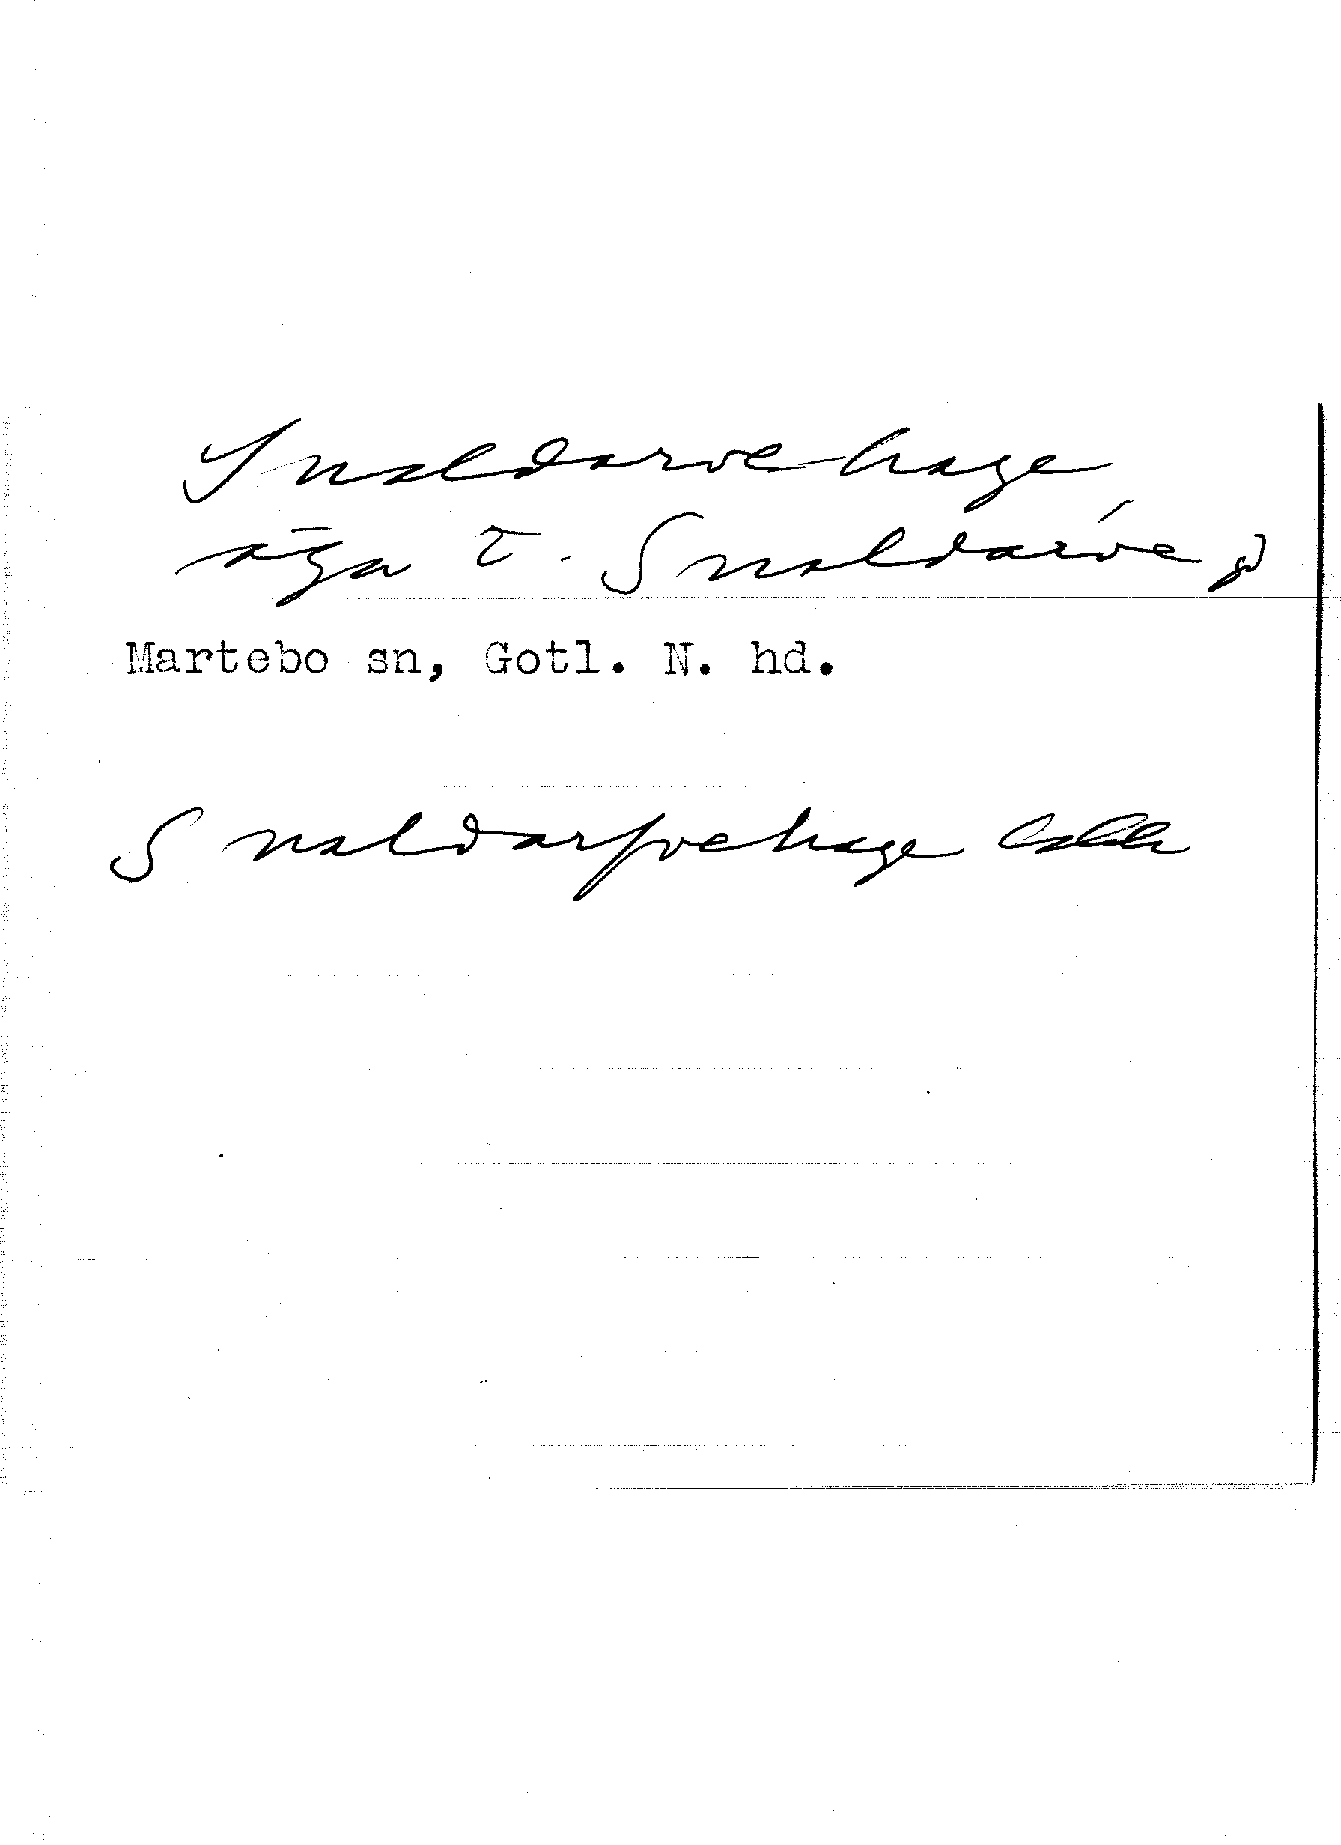 Snaldarvehage
äga t. Snaldarve gd
Martebo sn, Gotl. N. hd.
Snaldarfvehage